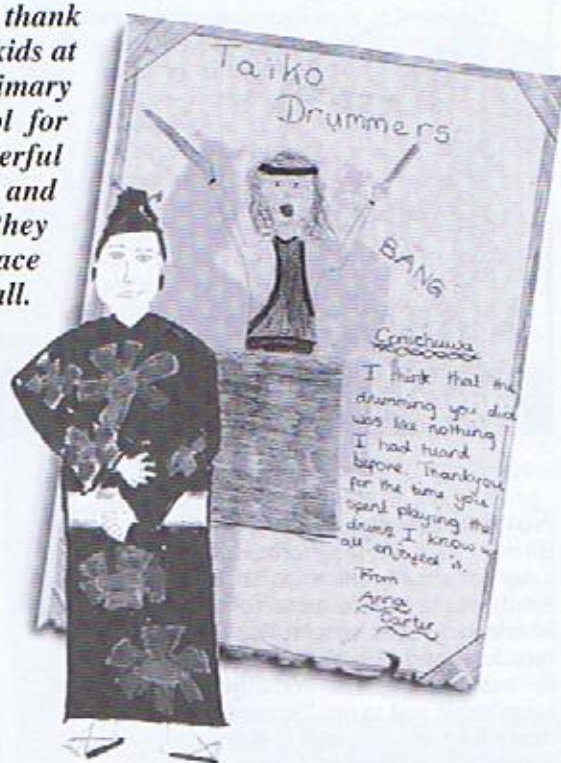 thank
kids at
imary
ol for
erful
and
hey
ace
all.
Taiko
Drummers
BANG
Conichuwa
I think that the
drumming you did
was like nothing
I had heard
before. Thankyou
for the time you
spent playing the
drums I know we
all enjoyed it.
From
Anna
Carter